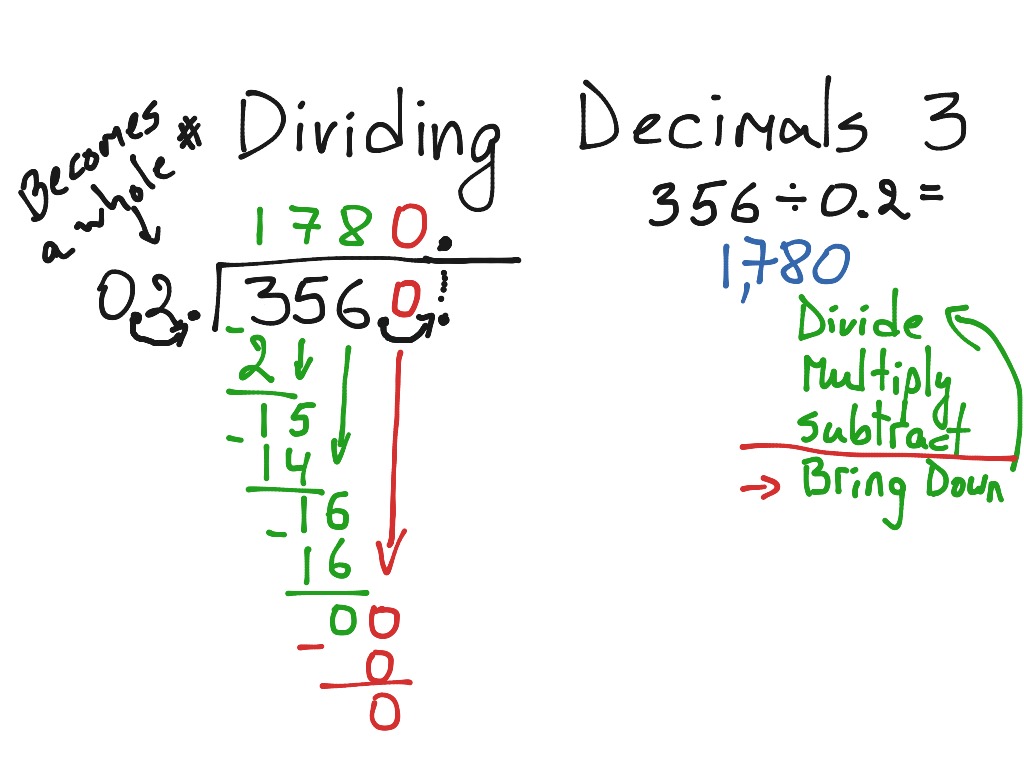 Dividing Decimals 3
Becomes
a whole #
356 ÷ 0.2 =
1,780
1780.
02.)3560.
- 2
15
- 14
16
- 16
00
- 0
0
Divide
Multiply
Subtract
→ Bring Down